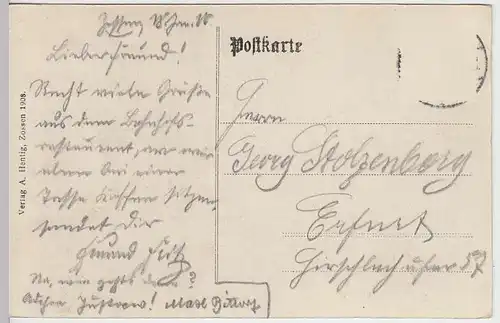 Zossen, 18. Jan. 10.
Lieber Freund!
Recht viele Grüße
aus dem Bahnhofs-
restaurant, wo wir
eben bei einer
Tasse Kaffee sitzen,
sendet Dir
Freund Fritz
Na, wie gehts denn?
Verlag A. Hentig, Zossen 1908.
Postkarte
Herrn
Georg Stolzenberg
Erfurt
Hirschlachufer 57